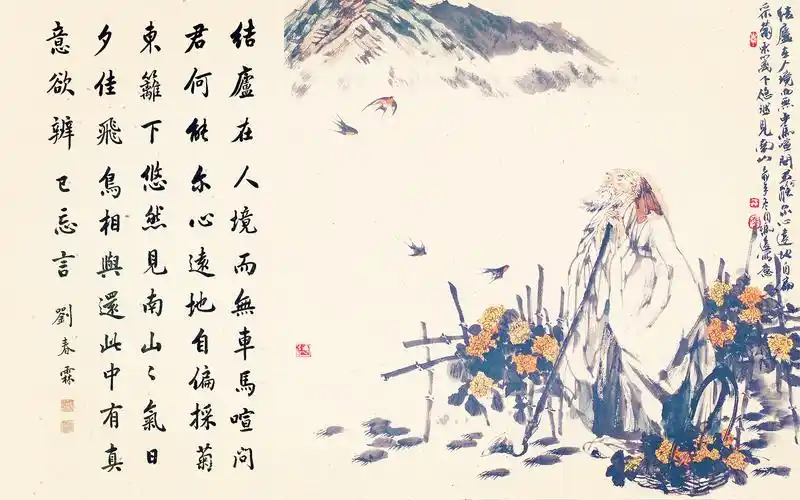 結廬在人境而無車馬喧問君能尔心遠地自偏
采菊东篱下悠然見南山
結廬在人境而無車馬喧問
君何能尔心遠地自偏採菊
東籬下悠然見南山々氣日
夕佳飛鳥相與還此中有真
意欲辨已忘言
劉春霖